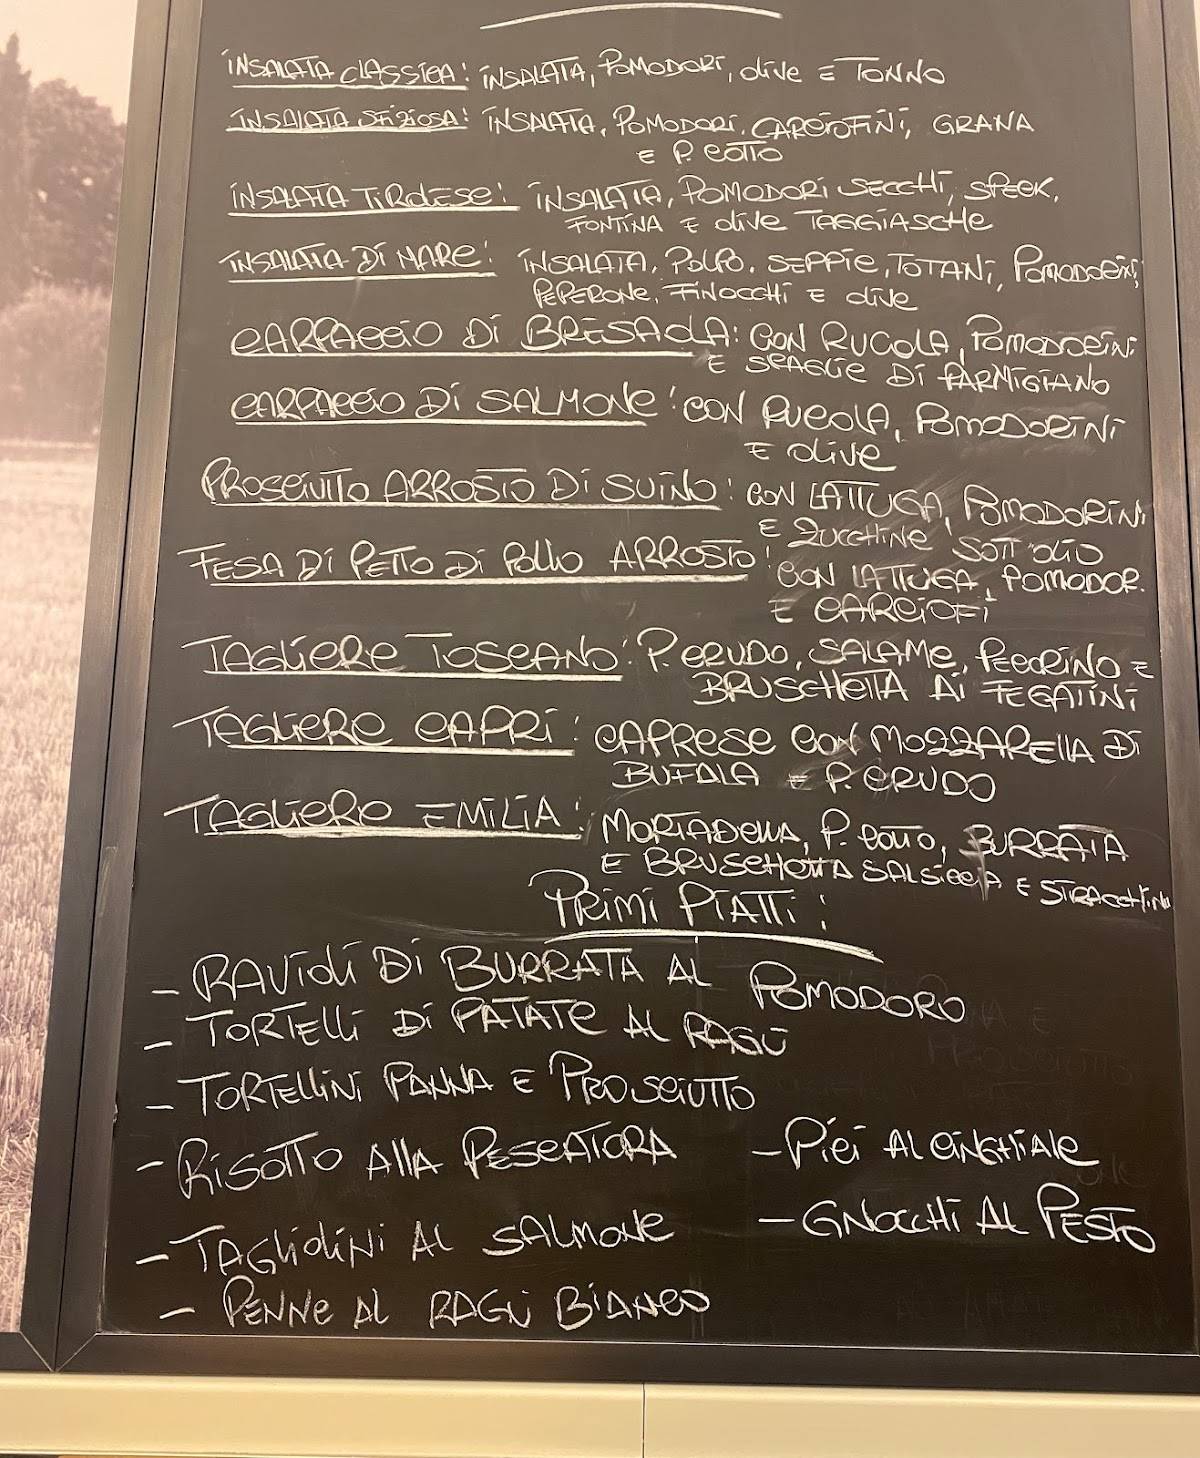 INSALATA CLASSICA: INSALATA, POMODORI, OLIVE E TONNO
INSALATA SFIZIOSA: INSALATA, POMODORI, CARCIOFINI, GRANA
E P. COTTO
INSALATA TIROLESE: INSALATA, POMODORI SECCHI, SPEEK,
FONTINA E OLIVE TAGGIASCHE
INSALATA DI MARE: INSALATA, POLPO, SEPPIE, TOTANI, POMODORINI,
PEPERONE, FINOCCHI E OLIVE
CARPACCIO DI BRESAOLA: CON RUCOLA, POMODORINI
E SCAGLIE DI PARMIGIANO
CARPACCIO DI SALMONE: CON RUCOLA, POMODORINI
E OLIVE
PROSCIUTTO ARROSTO DI SUINO: CON LATTUGA, POMODORINI
E ZUCCHINE SOTT'OLIO
FESA DI PETTO DI POLLO ARROSTO: CON LATTUGA, POMODOR.
E CARCIOFI
TAGLIERE TOSCANO: P. CRUDO, SALAME, PECORINO E
BRUSCHETTA AI FEGATINI
TAGLIERE CAPRI: CAPRESE CON MOZZARELLA DI
BUFALA E P. CRUDO
TAGLIERE EMILIA: MORTADELLA, P. COTTO, BURRATA
E BRUSCHETTA SALSICCIA E STRACCHINO
PRIMI PIATTI:
- RAVIOLI DI BURRATA AL POMODORO
- TORTELLI DI PATATE AL RAGÙ
- TORTELLINI PANNA E PROSCIUTTO
- RISOTTO ALLA PESCATORA
- TAGLIOLINI AL SALMONE
- PENNE AL RAGÙ BIANCO
- PICI AL CINGHIALE
- GNOCCHI AL PESTO